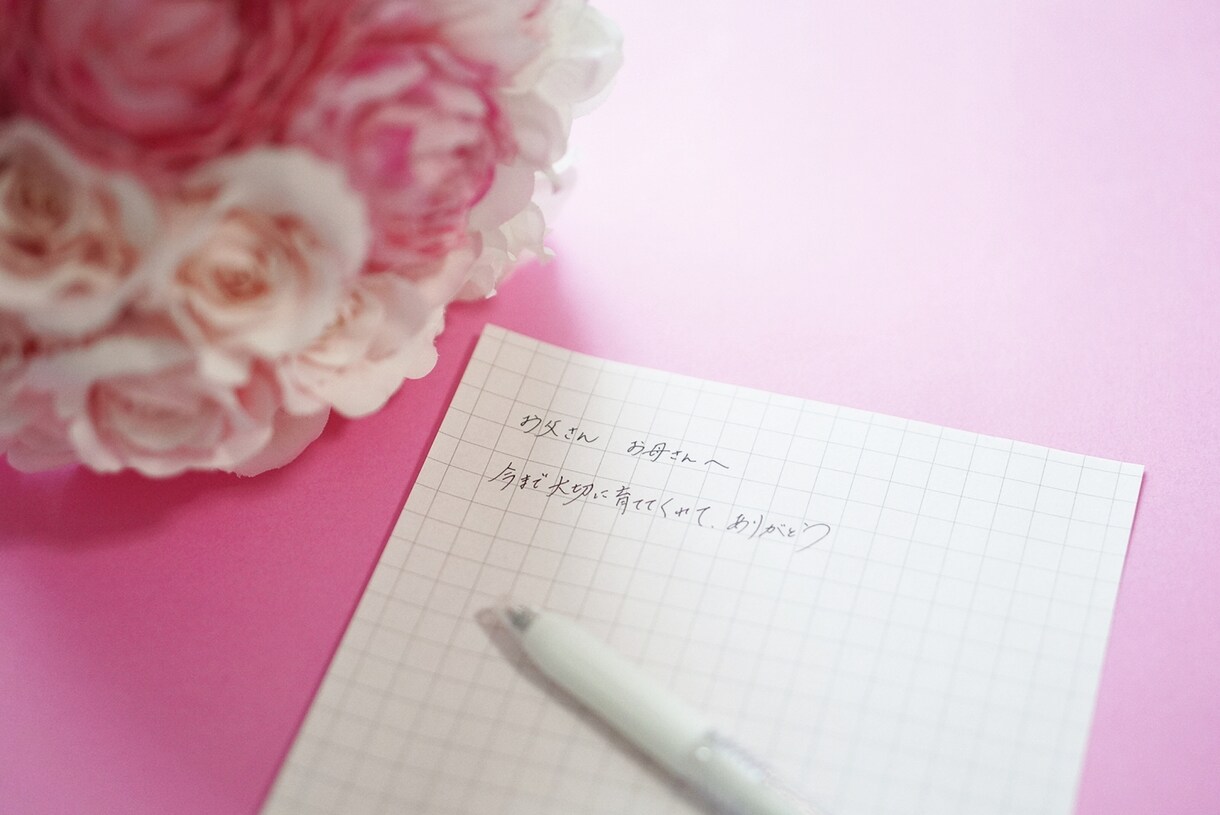 お父さん　お母さんへ
今まで大切に育ててくれて、ありがとう